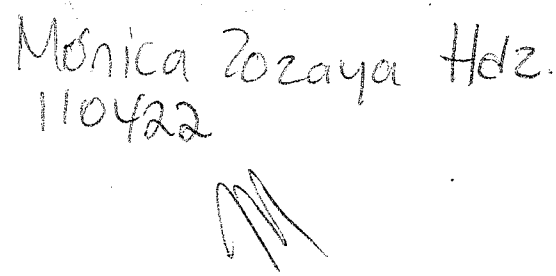 Mónica Zozaya Hdz.
110422